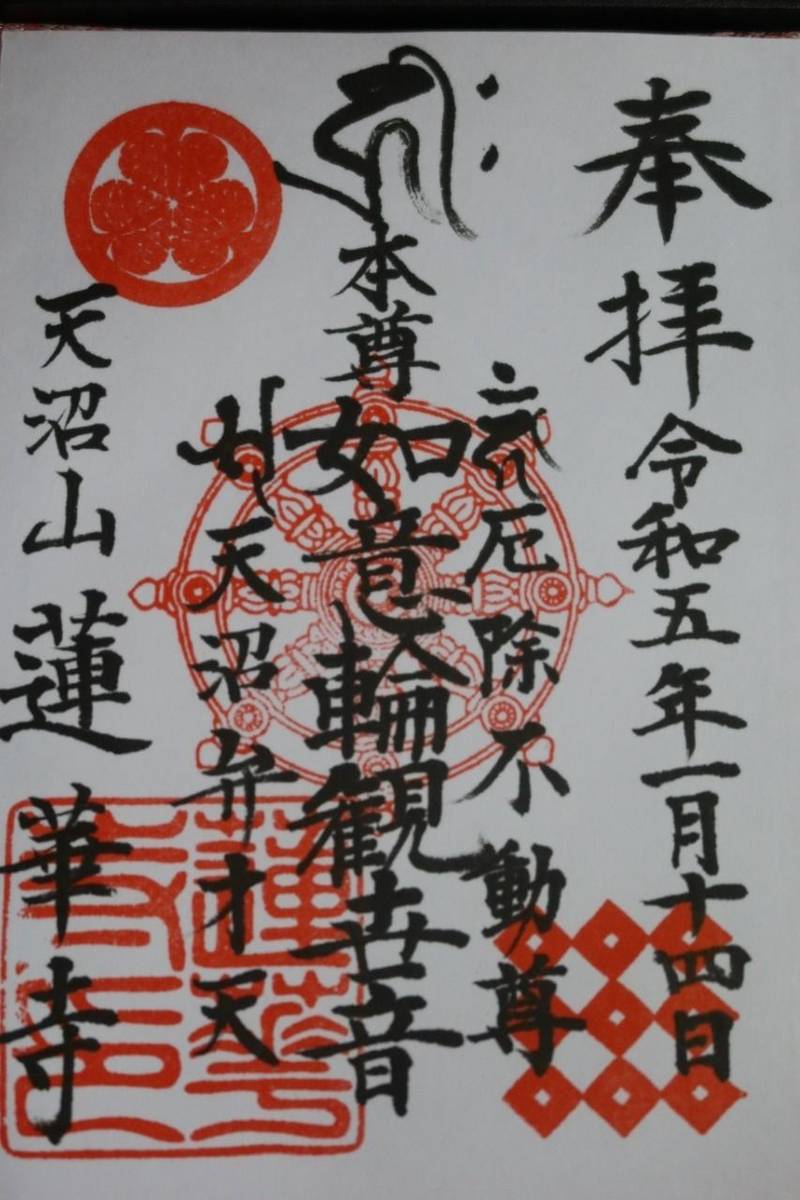 奉拝
令和五年一月十四日
厄除不動尊
本尊
如意輪観世音
天沼弁才天
天沼山
蓮華寺